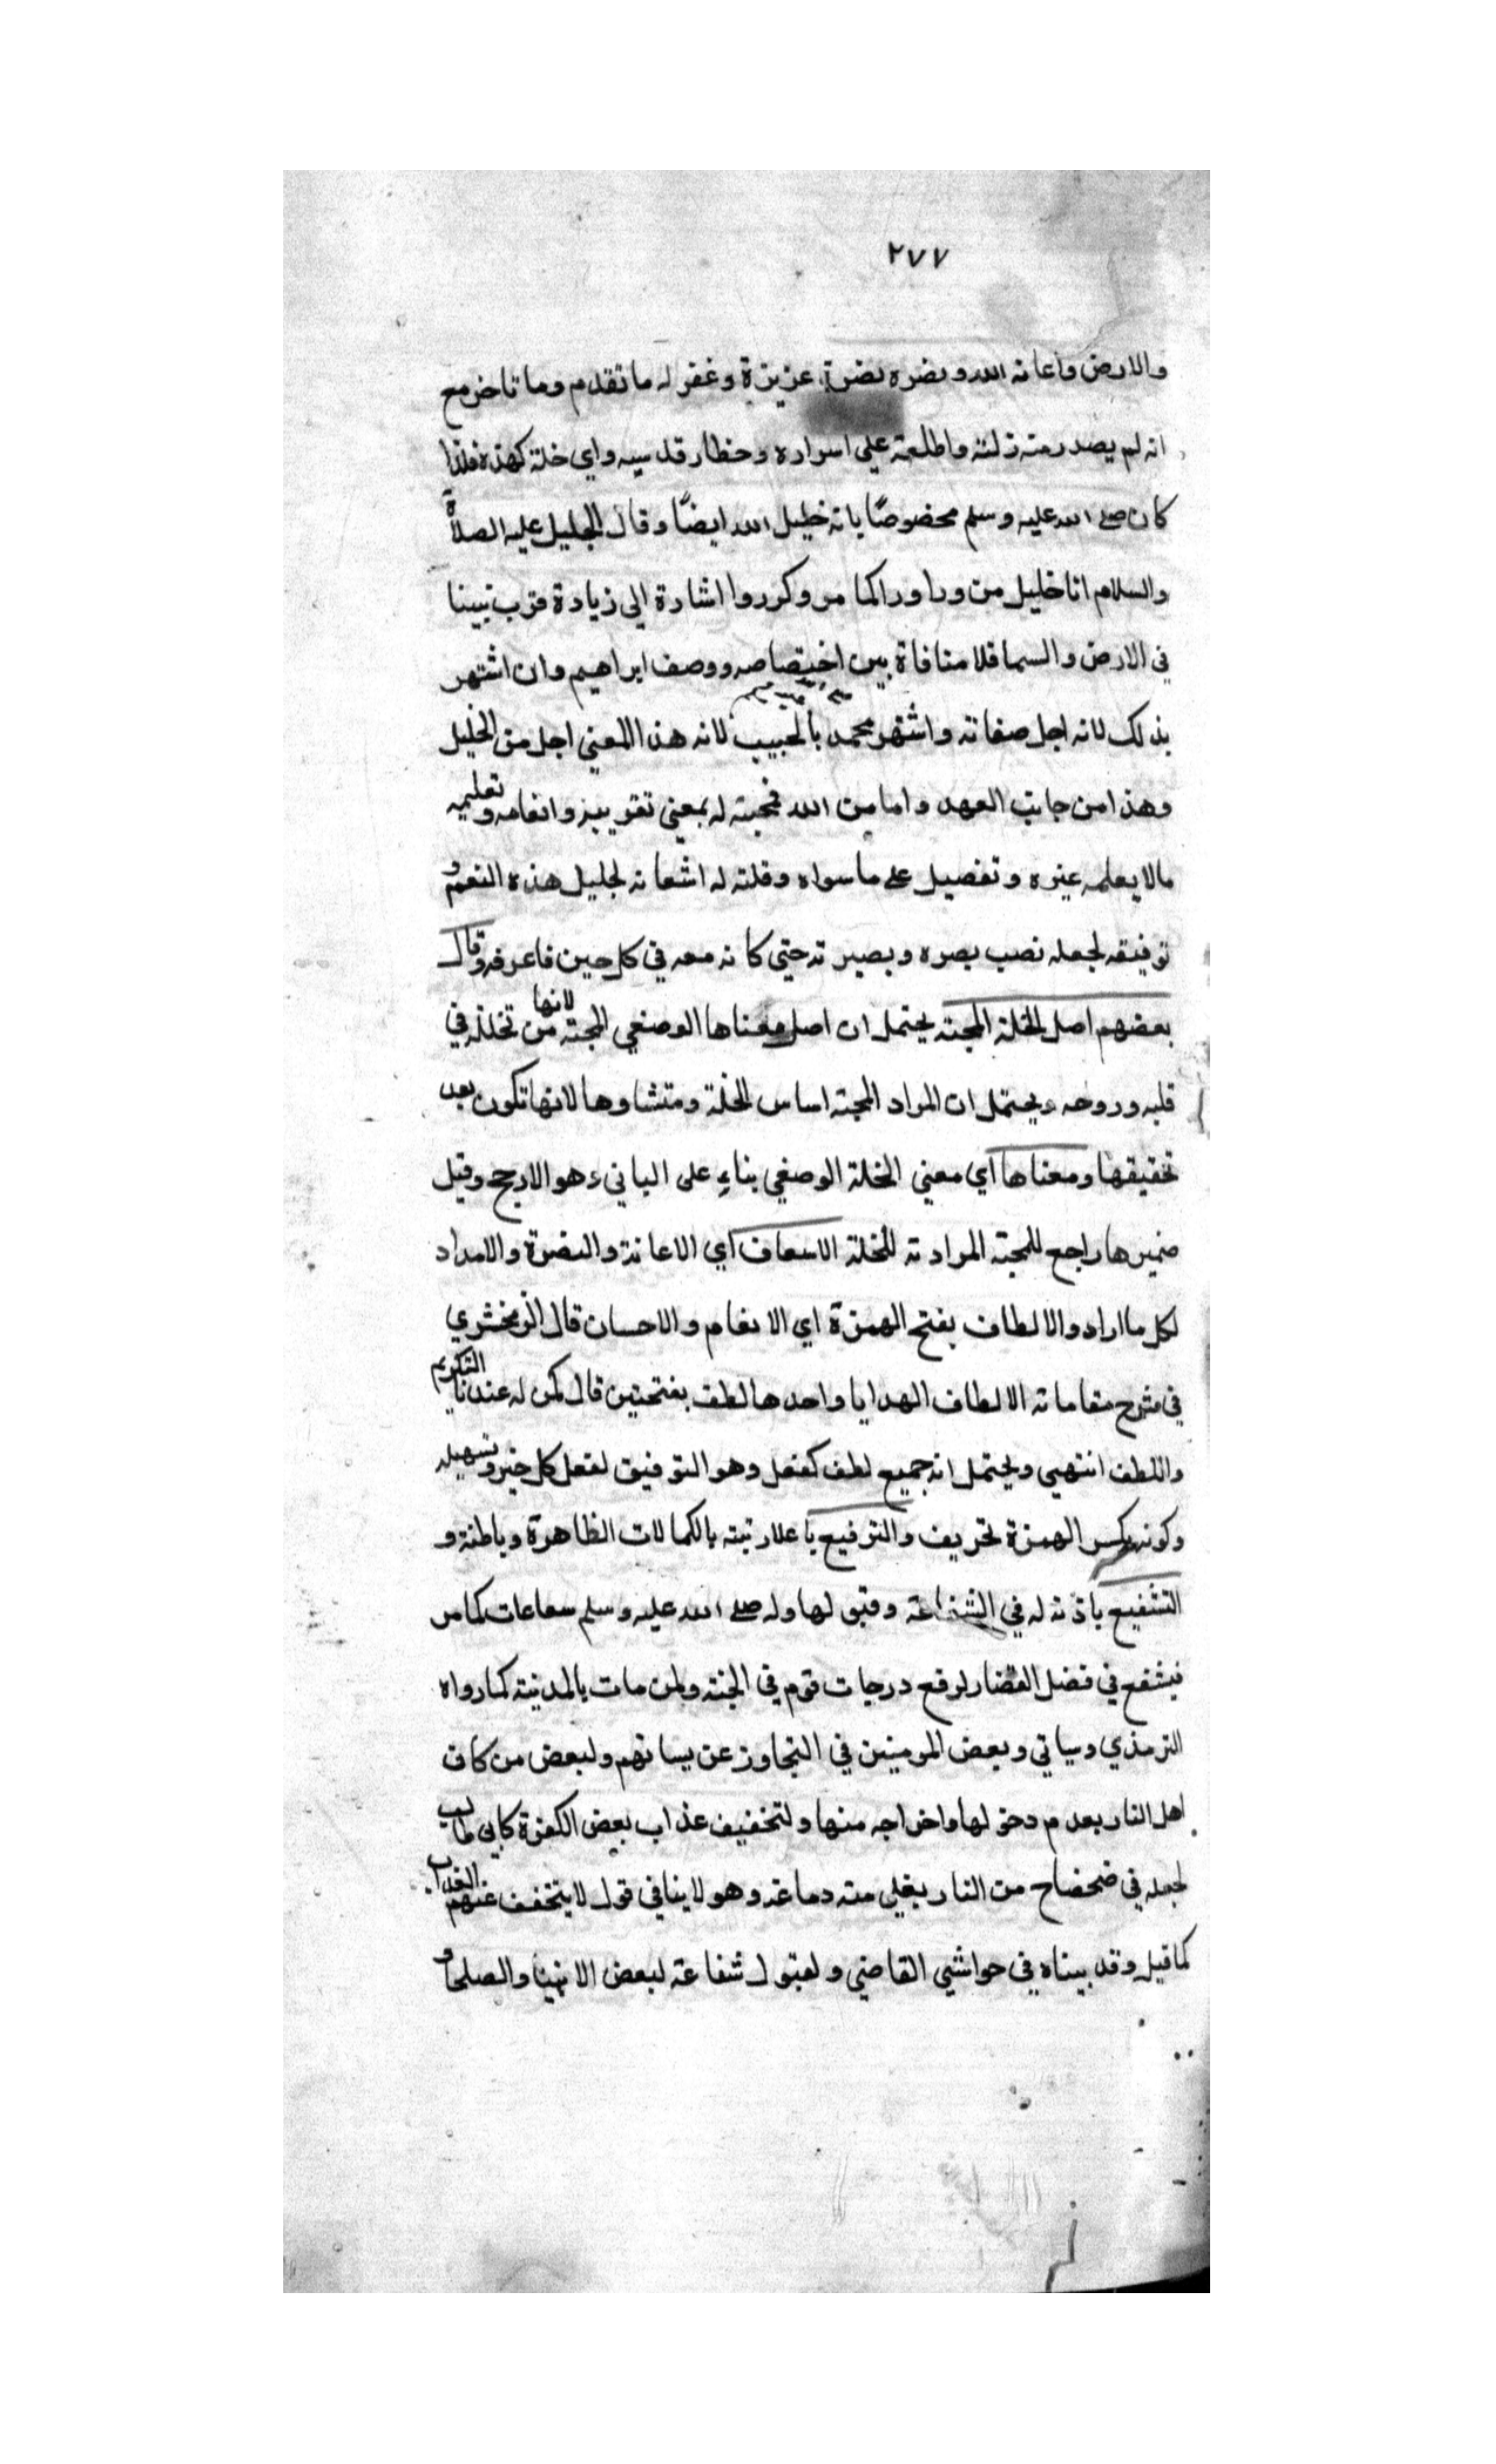 ٢٧٧
والارض واعانه الله ونصره نصرة عزيزة وغفر له ما تقدم وما تاخر مع
انه لم يصدر منه زلته واطلعه علي اسراره وحظار قدسيه واي خلة كهذه فلذا
كان صلى الله عليه وسلم مخصوصًا بانه خليل الله ايضًا وقال الجليل عليه الصلاة
والسلام انا خليل من ورا ورا كما مر وكرروا اشارة الى زيادة قرب نبينا
في الارض والسما فلا منافاة بين اختصاصه ووصف ابراهيم وان اشتهر
بذلك لانه اجل صفاته واشتهر محمد بالحبيب لانه هذا المعني اجل من الخليل
وهذا من جانب العهد واما من الله فمحبته له بمعني تقريبه وانعامه وتعليمه
مالا يعلمه غيره وتفصيل على ما سواه وقلته له اشعانه لجليل هذه النعم و
توفيقه لجعله نصب بصره وبصيرته حتي كانه معه في كل حين فاعرفه وقال
بعضهم اصل الخلة المحبته يحتمل ان اصل معناها الوصفي المحبته لانها من تخلله في
قلبه وروحه ويحتمل ان المراد المحبته اساس الخلة ومتشاوها لانها تكون بعد
تحقيقها ومعناها اي معني الخلة الوصفي بناءٍ على الباني وهو الارجح وقيل
ضميرها راجع للمحبته المرادته للخلة الاسعاف اي الاعانة والنصرة والامداد
لكل ما اراد والالطاف بفتح الهمزة اي الانعام والاحسان قال الزمخشري
في شرح مقاماته الالطاف الهدايا واحدها لطف بفتحتين قال لمن له عندنا التكريم
واللطف انتهي ويحتمل انه جميع لطف كفعل وهو التوفيق لفعل كل خير وتسهيله
وكونه بكسر الهمزة تحريف والترفيع باعلا رتبته بالكمالات الظاهرة وباطنة و
التشفيع باذنه له في الشفاعة وقبولها وله صلى الله عليه وسلم سعاعات كما مر
فيشفع في فضل القضا ولرفع درجات قوم في الجنة ولمن مات بالمدينة كما رواه
الترمذي وسياتي وبعض المومنين في التجاوز عن سياتهم ولبعض من كان
اهل النار بعدم دخولها واخراجه منها ولتخفيف عذاب بعض الكفرة كابي طالب
لجعله في ضحضاح من النار يغلي منه دماغه وهو لا ينافي قول لا يتخفف عنهم العذاب
كما قيل وقد بيناه في حواشي القاضي ولقبول شفاعة لبعض الانبيا والصلحا و